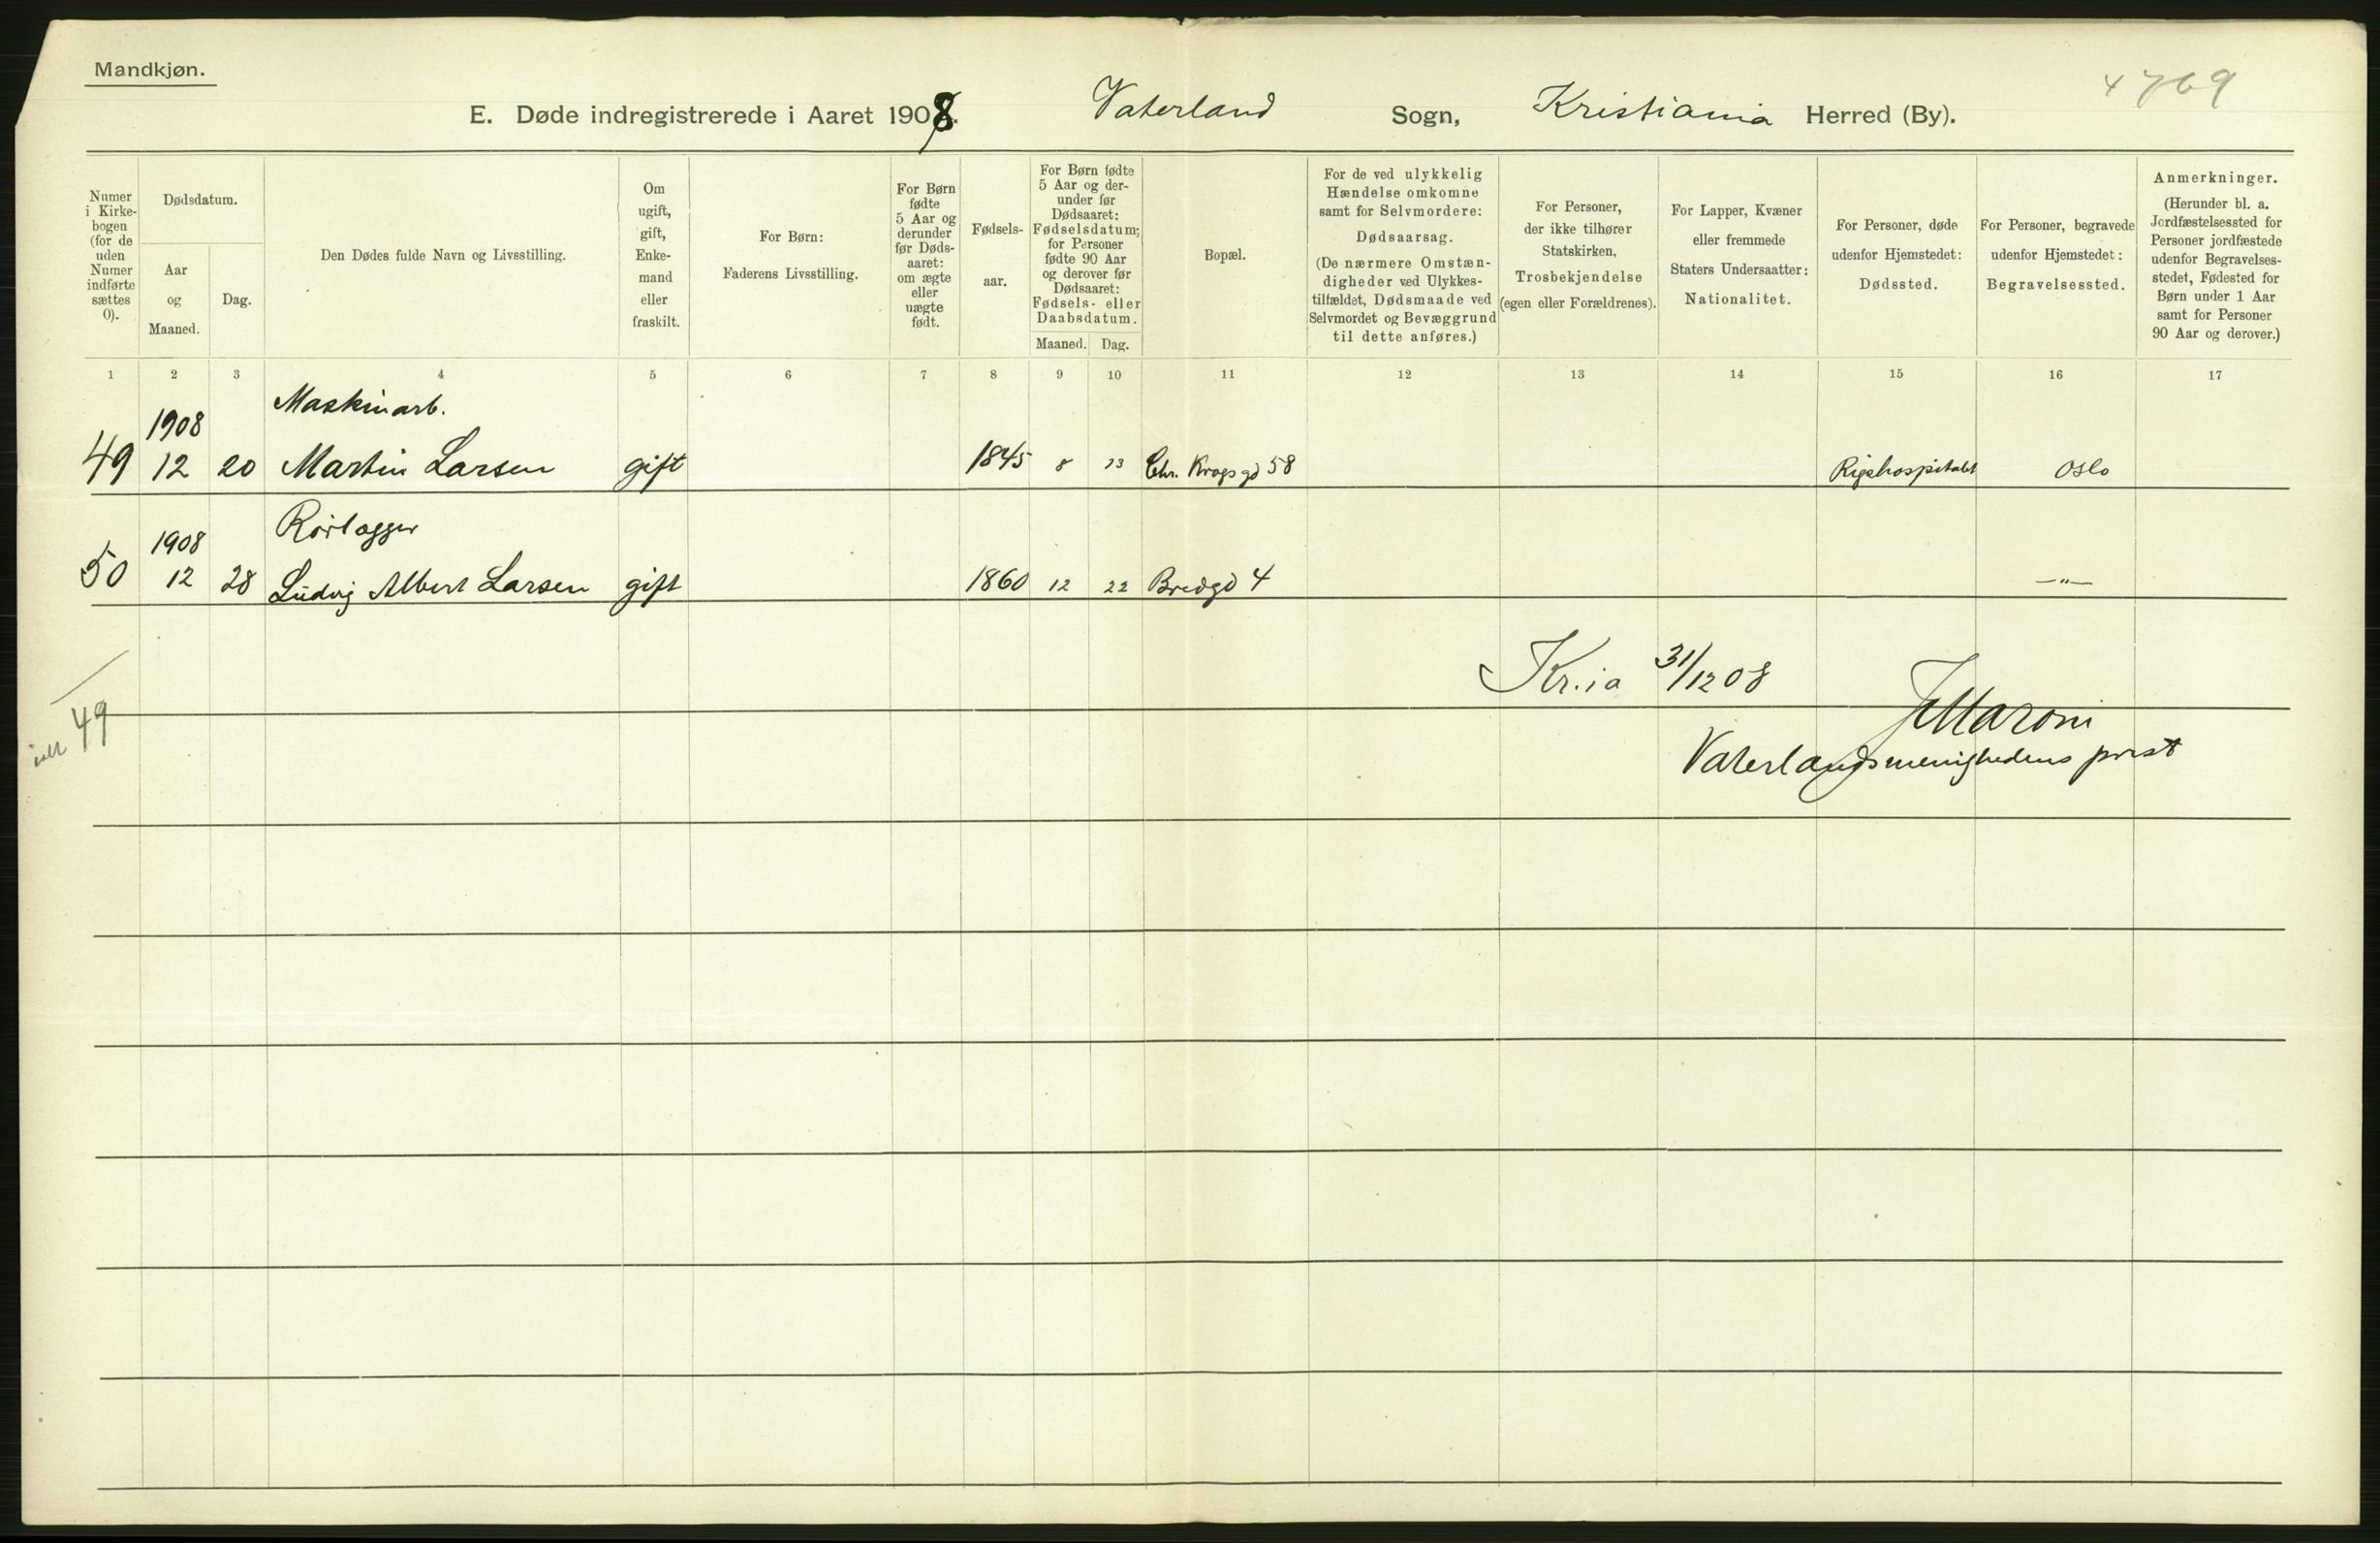 Mandkjøn.
4769
E. Døde indregistrerede i Aaret 1908. Vaterland Sogn, Kristiania Herred (By).
Numer
i Kirke-
bogen
(for de
uden
Numer
indførte
sættes
0).
Dødsdatum.
Aar
og
Maaned.
Dag.
Den Dødes fulde Navn og Livsstilling.
Om
ugift,
gift,
Enke-
mand
eller
fraskilt.
For Børn:
Faderens Livsstilling.
For Børn
fødte
5 Aar og
derunder
før Døds-
aaret:
om ægte
eller
uægte
født.
Fødsels-
aar.
For Børn fødte
5 Aar og der-
under før
Dødsaaret:
Fødselsdatum;
for Personer
fødte 90 Aar
og derover før
Dødsaaret:
Fødsels- eller
Daabsdatum.
Maaned. Dag.
Bopæl.
For de ved ulykkelig
Hændelse omkomne
samt for Selvmordere:
Dødsaarsag.
(De nærmere Omstæn-
digheder ved Ulykkes-
tilfældet, Dødsmaade ved
Selvmordet og Bevæggrund
til dette anføres.)
For Personer,
der ikke tilhører
Statskirken,
Trosbekjendelse
(egen eller Forældrenes).
For Lapper, Kvæner
eller fremmede
Staters Undersaatter:
Nationalitet.
For Personer, døde
udenfor Hjemstedet:
Dødssted.
For Personer, begravede
udenfor Hjemstedet:
Begravelsessted.
Anmerkninger.
(Herunder bl. a.
Jordfæstelsessted for
Personer jordfæstede
udenfor Begravelses-
stedet, Fødested for
Børn under 1 Aar
samt for Personer
90 Aar og derover.)
1 2 3 4 5 6 7 8 9 10 11 12 13 14 15 16 17
1908 Maskinarb.
49 12 20 Martin Larsen gift 1845 8 13 Chr. Krogs gd 58 Rigshospitalet Oslo
1908 Rørlægger
50 12 28 Ludvig Albert Larsen gift 1860 12 22 Bredgd 4 —"—
Kr.ia 31/12 08
ialt 49
Maroni
Vaterlandsmenighedens prest